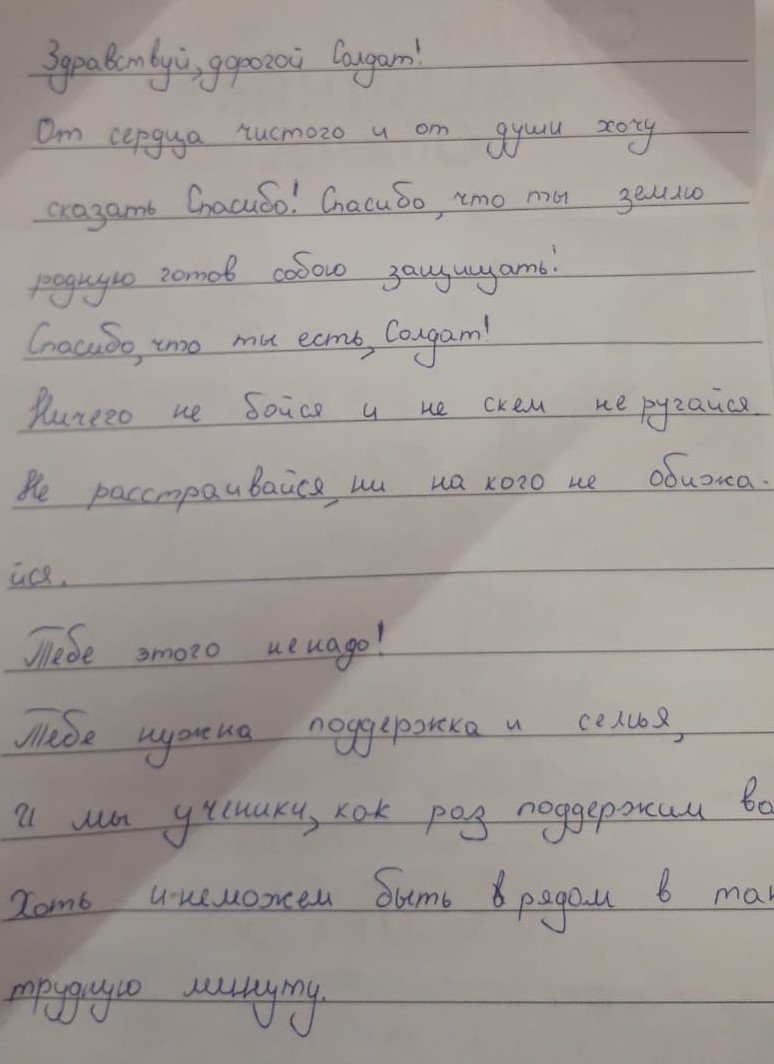 Здравствуй, дорогой Солдат!
От сердца чистого и от души хочу
сказать Спасибо! Спасибо, что ты землю
родную готов собою защищать!
Спасибо, что ты есть, Солдат!
Ничего не бойся и не скем не ругайся
Не расстраивайся, ни на кого не обижа-
йся.
Тебе этого ненадо!
Тебе нужна поддержка и семья,
И мы ученики, как раз поддержим ва
Хоть и неможем быть в рядом в так
трудную минуту.